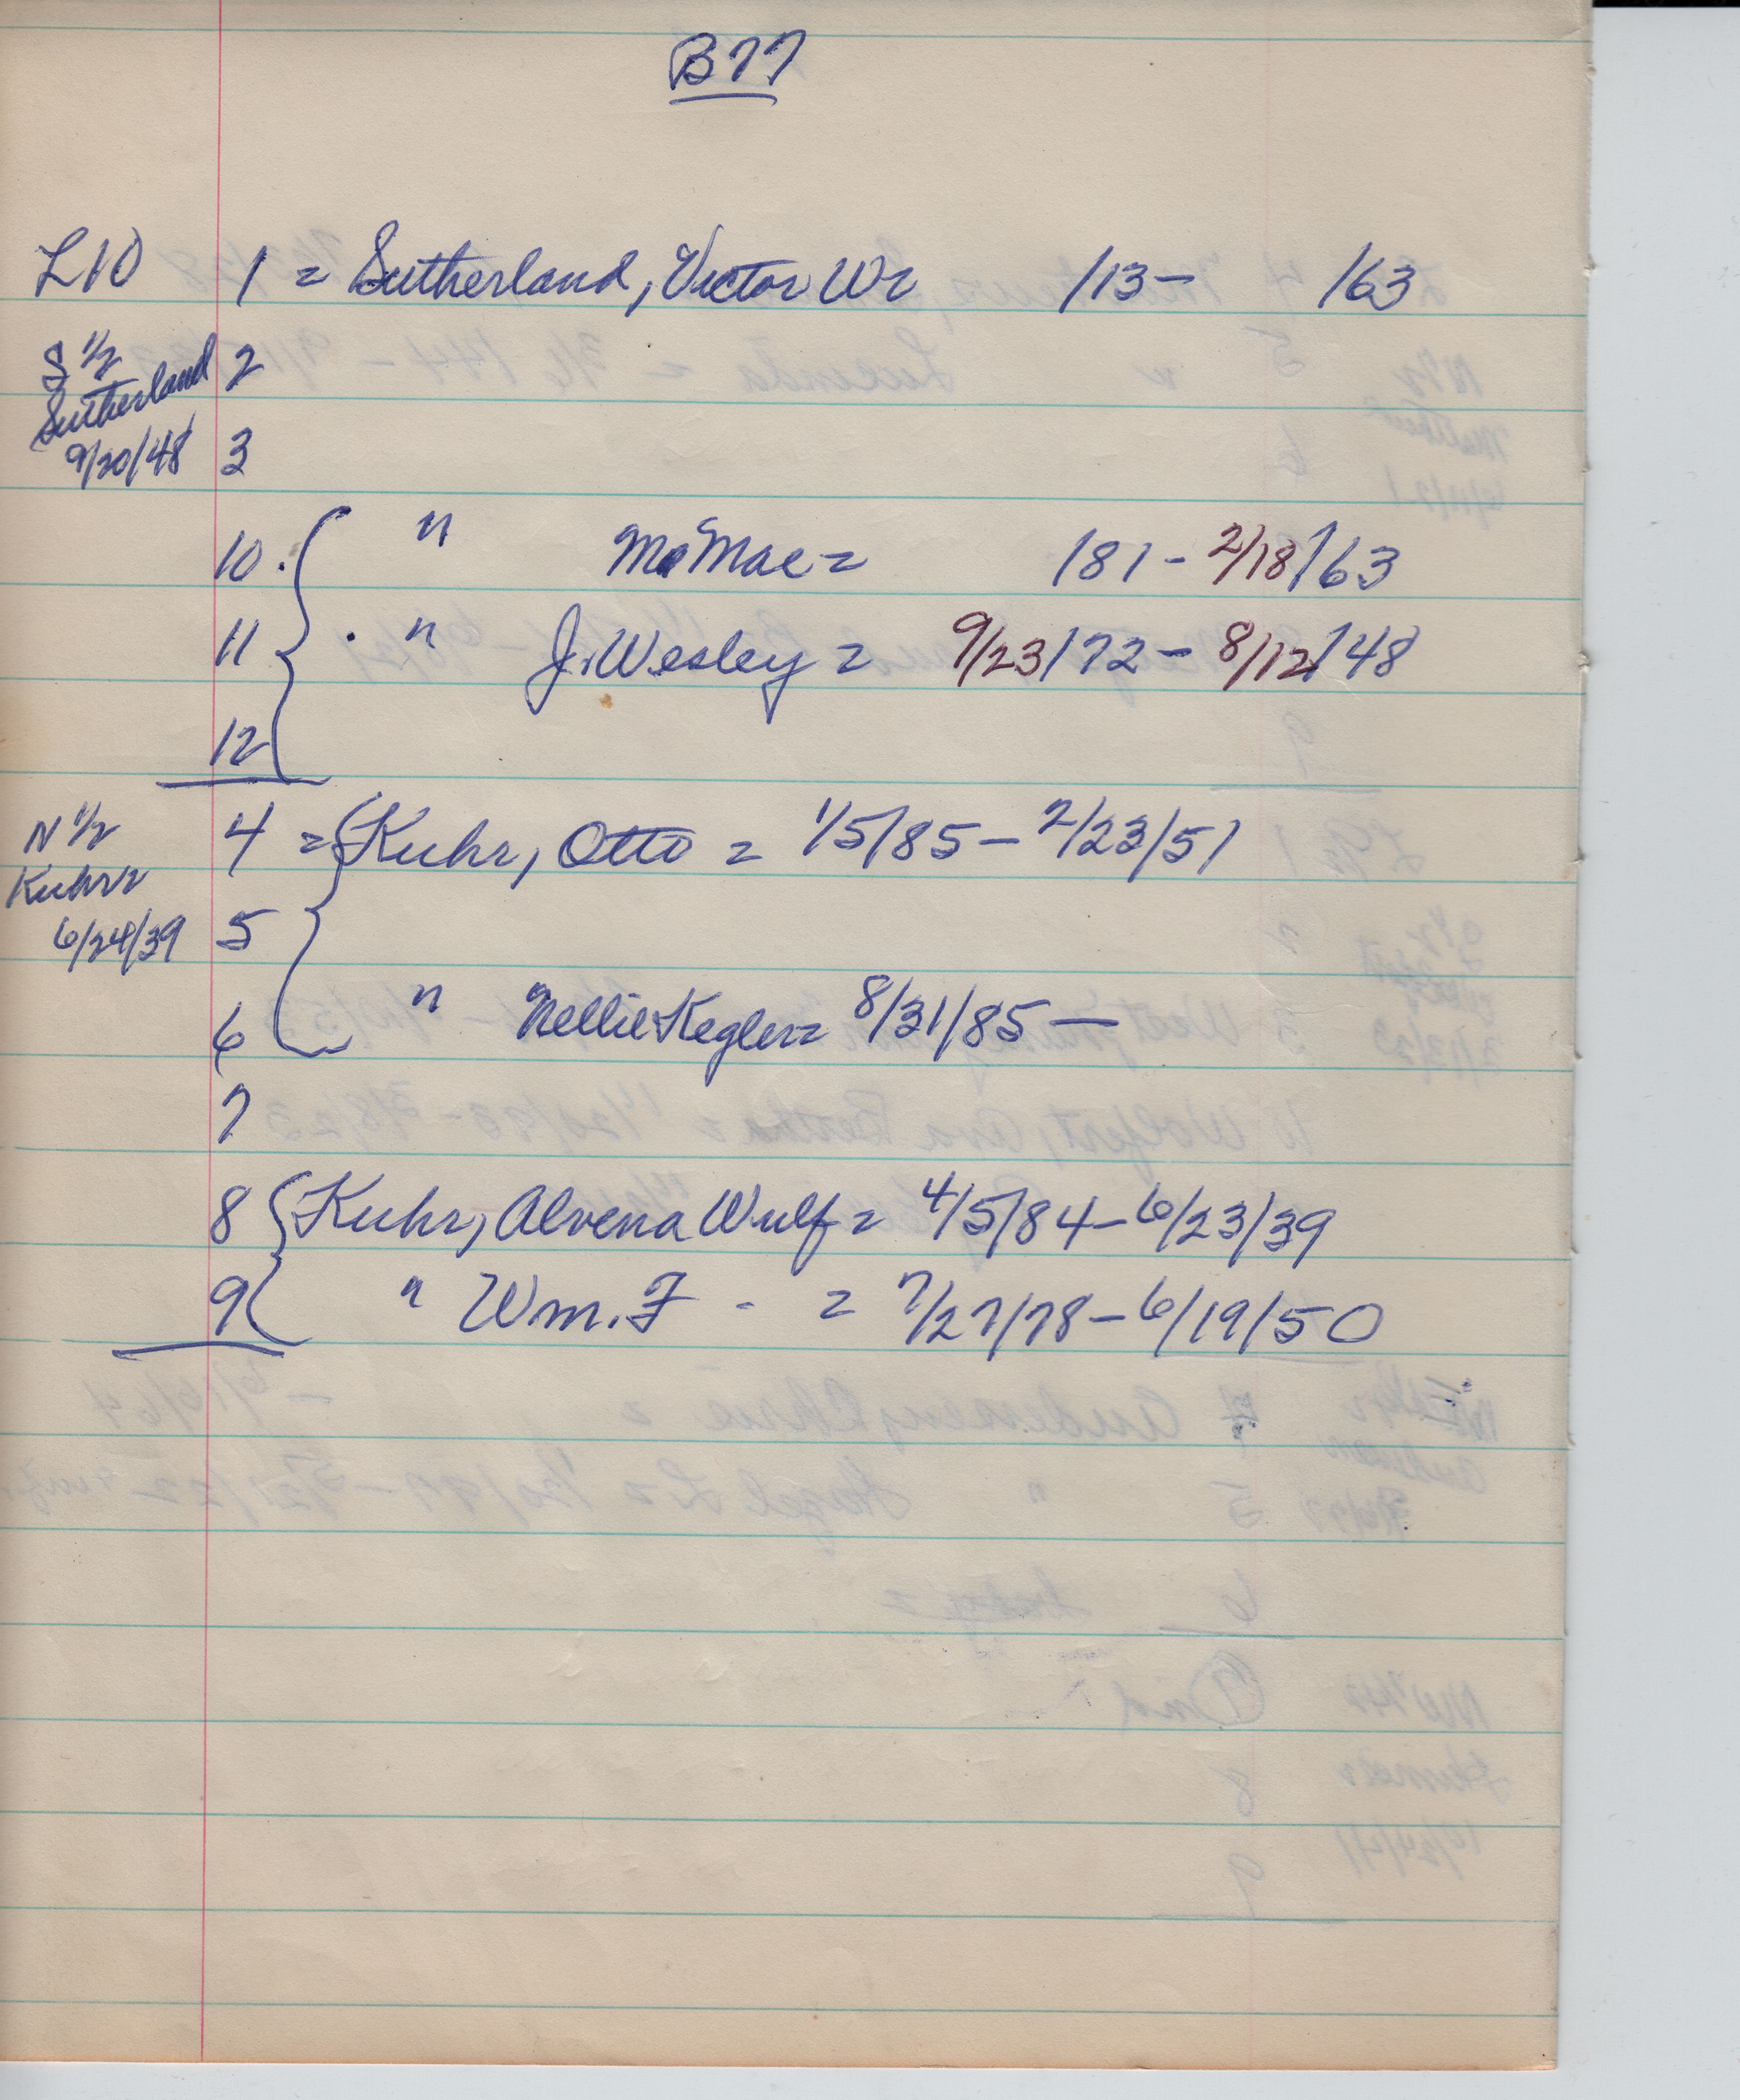 B77
L10 1 = Sutherland, Victor W= /13- /63
S 1/2 2
Sutherland
9/20/48 3
10. " Mae = /81 - 2/18/63
11 . " J. Wesley = 9/23/72 - 8/12/48
12
N 1/2 4 = Kuhr, Otto = 1/5/85 - 2/23/51
Kuhr=
6/24/39 5
6 " Nellie Kegler= 8/31/85 -
7
8 Kuhr, Alvena Wulf = 4/5/84 - 6/23/39
9 " Wm. F - = 7/27/78 - 6/19/50